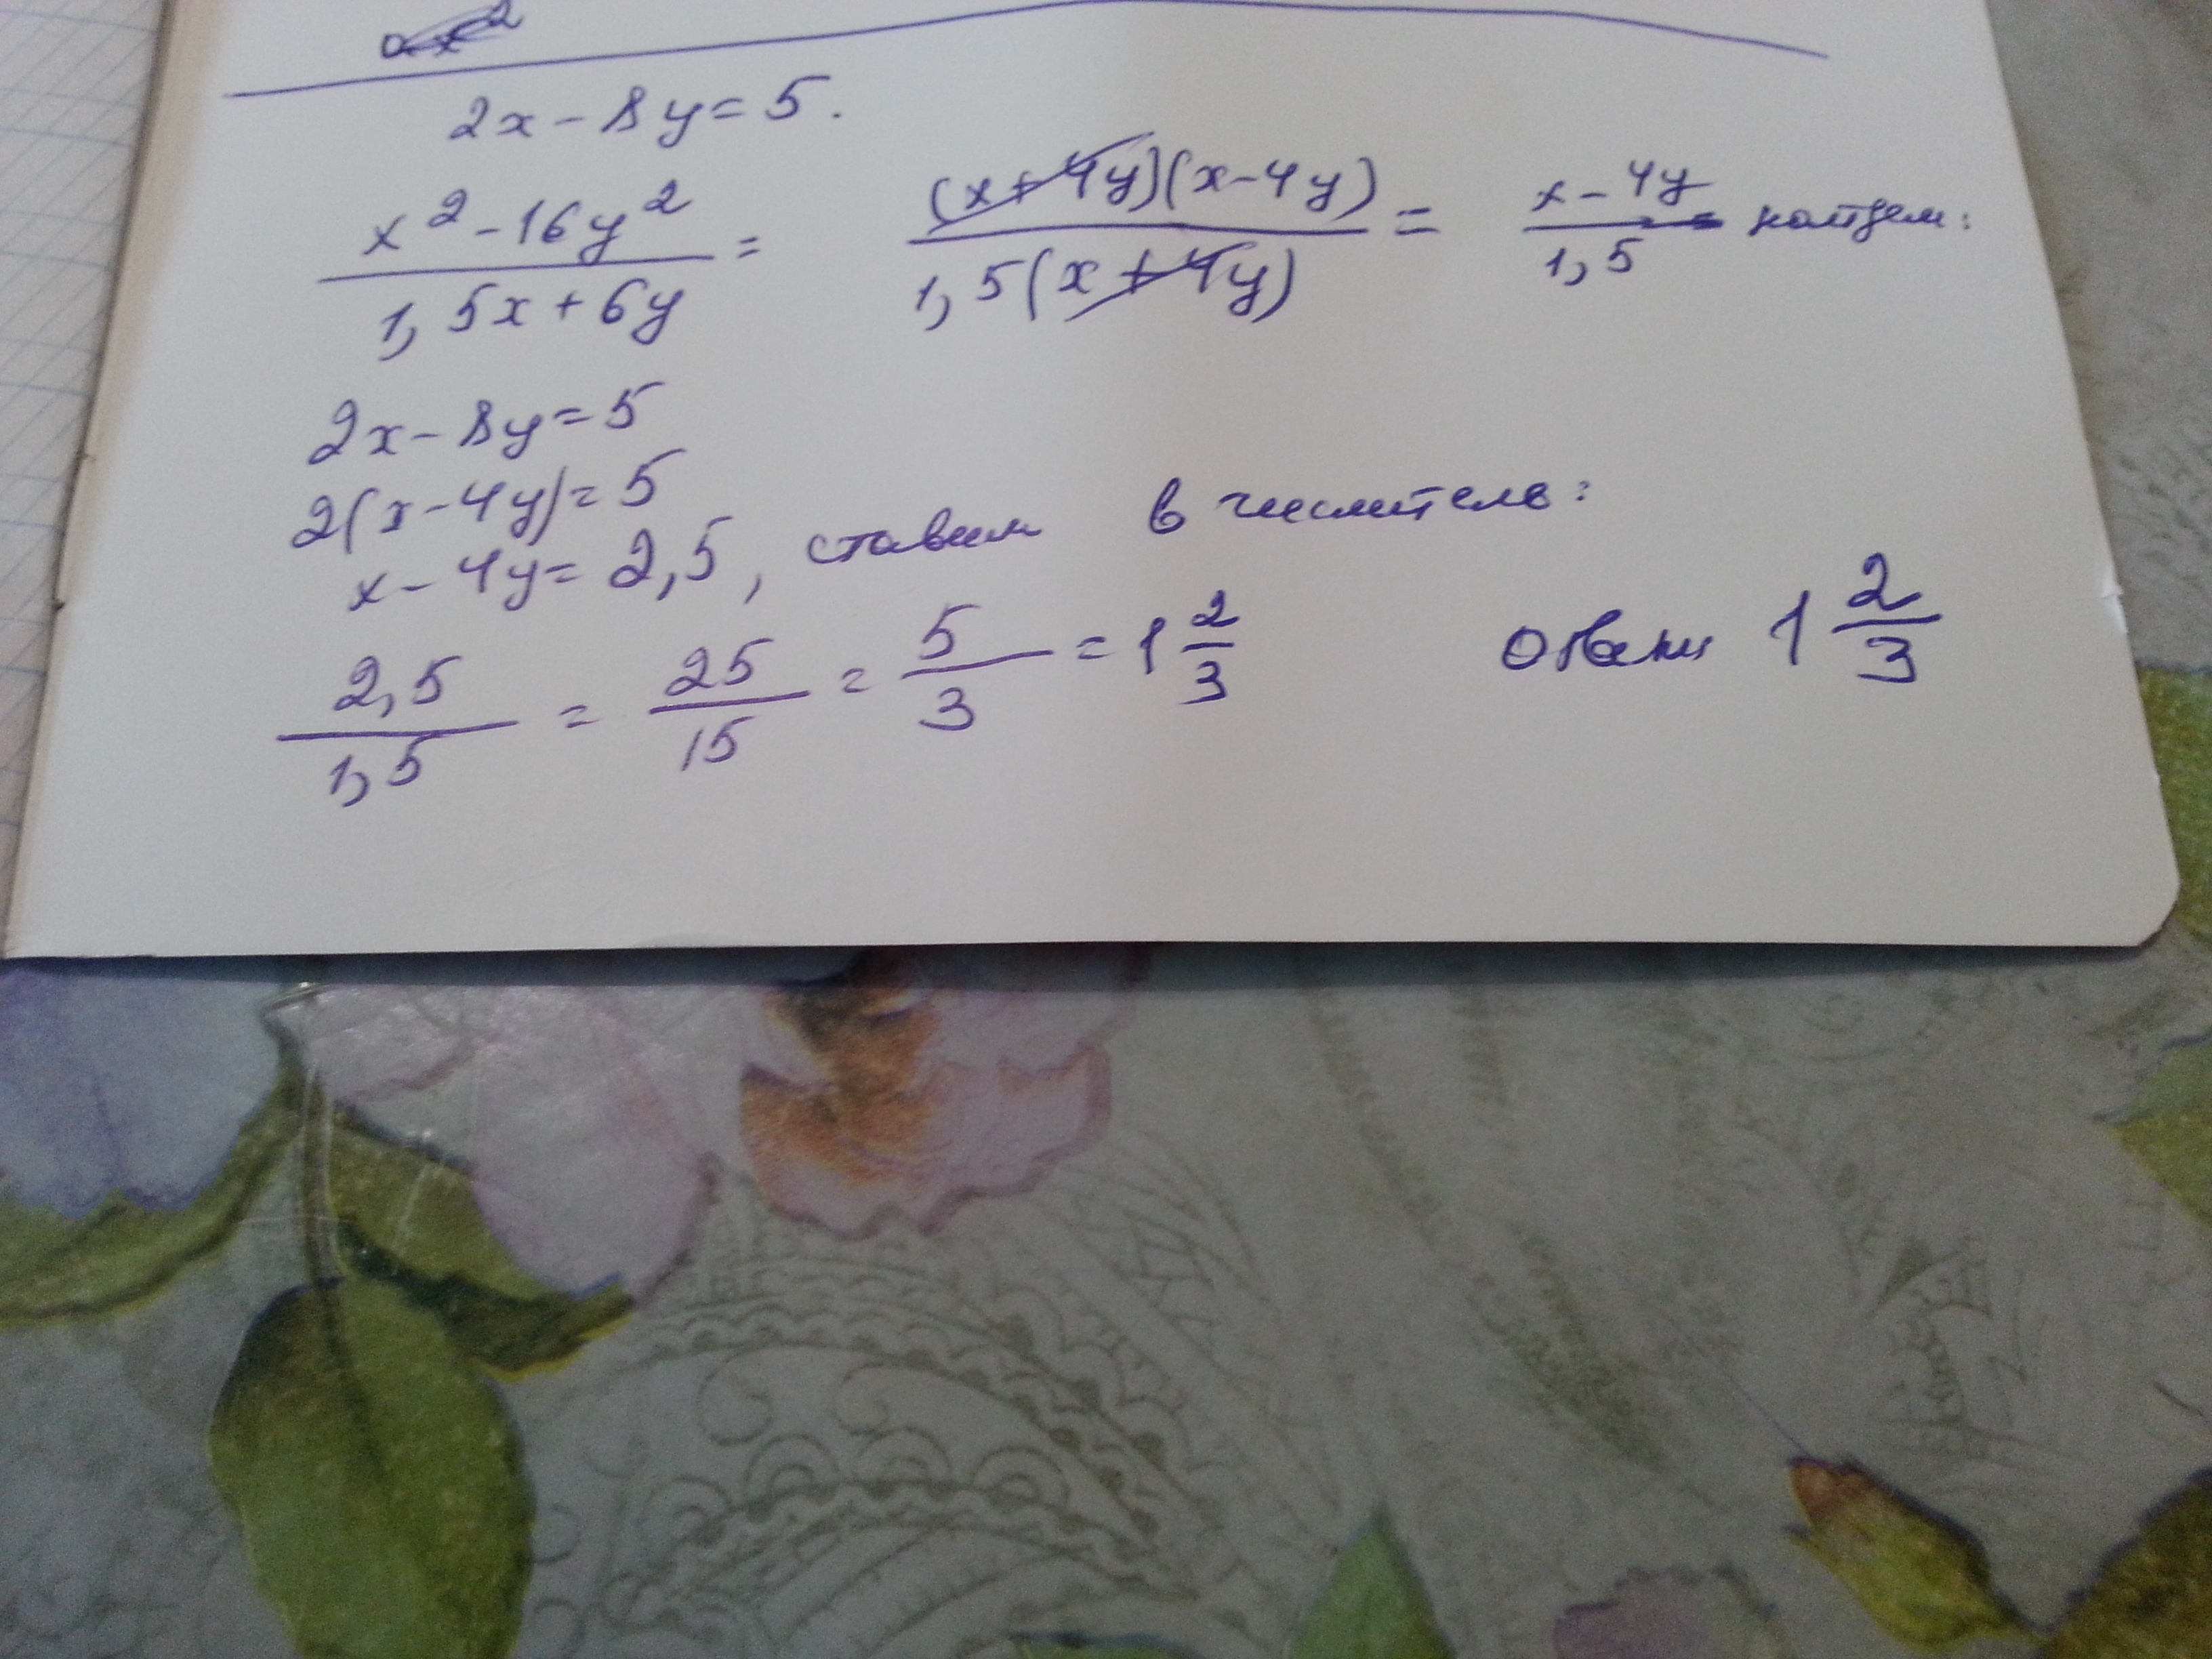 2x - 8y = 5.
x² - 16y² / 1,5x + 6y = (x + 4y)(x - 4y) / 1,5(x + 4y) = x - 4y / 1,5 найдем:
2x - 8y = 5
2(x - 4y) = 5
x - 4y = 2,5, ставим в числитель:
2,5 / 1,5 = 25 / 15 = 5 / 3 = 1 2/3 ответ 1 2/3